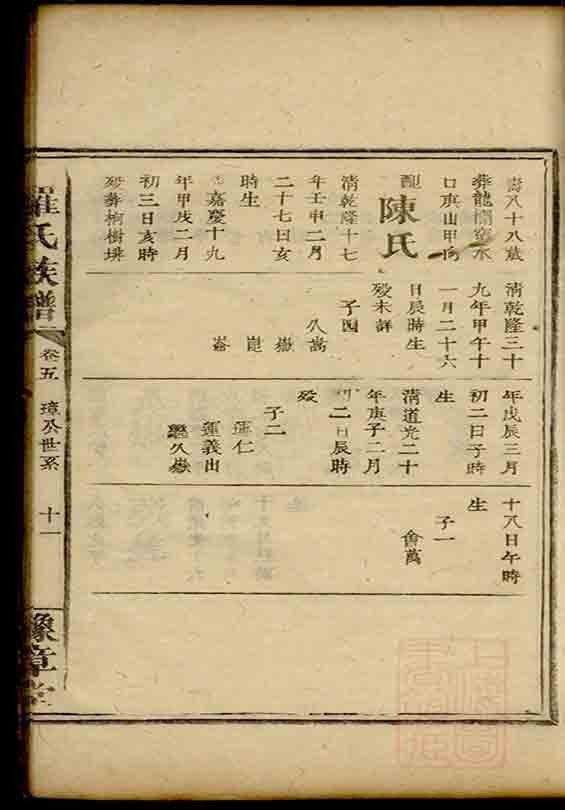 壽八十八歲
葬龍
口庚山甲向
配陳氏
清乾隆十七
年壬申二月
二十七日亥
時生
嘉慶十九
年甲戌二月
初三日亥時
歿葬栒樹坝
清乾隆三十
九年甲午十
一月二十六
日辰時生
歿未詳
子四
八萬
嶽
崑
崙
年戊辰三月
初二日子時
生
清道光二十
年庚子二月
初二日辰時
歿
子二
運仁
運義出
繼久嶽
十八日午時
生
子一
會萬
羅氏族譜
卷五
璋公世系
十一
豫章堂